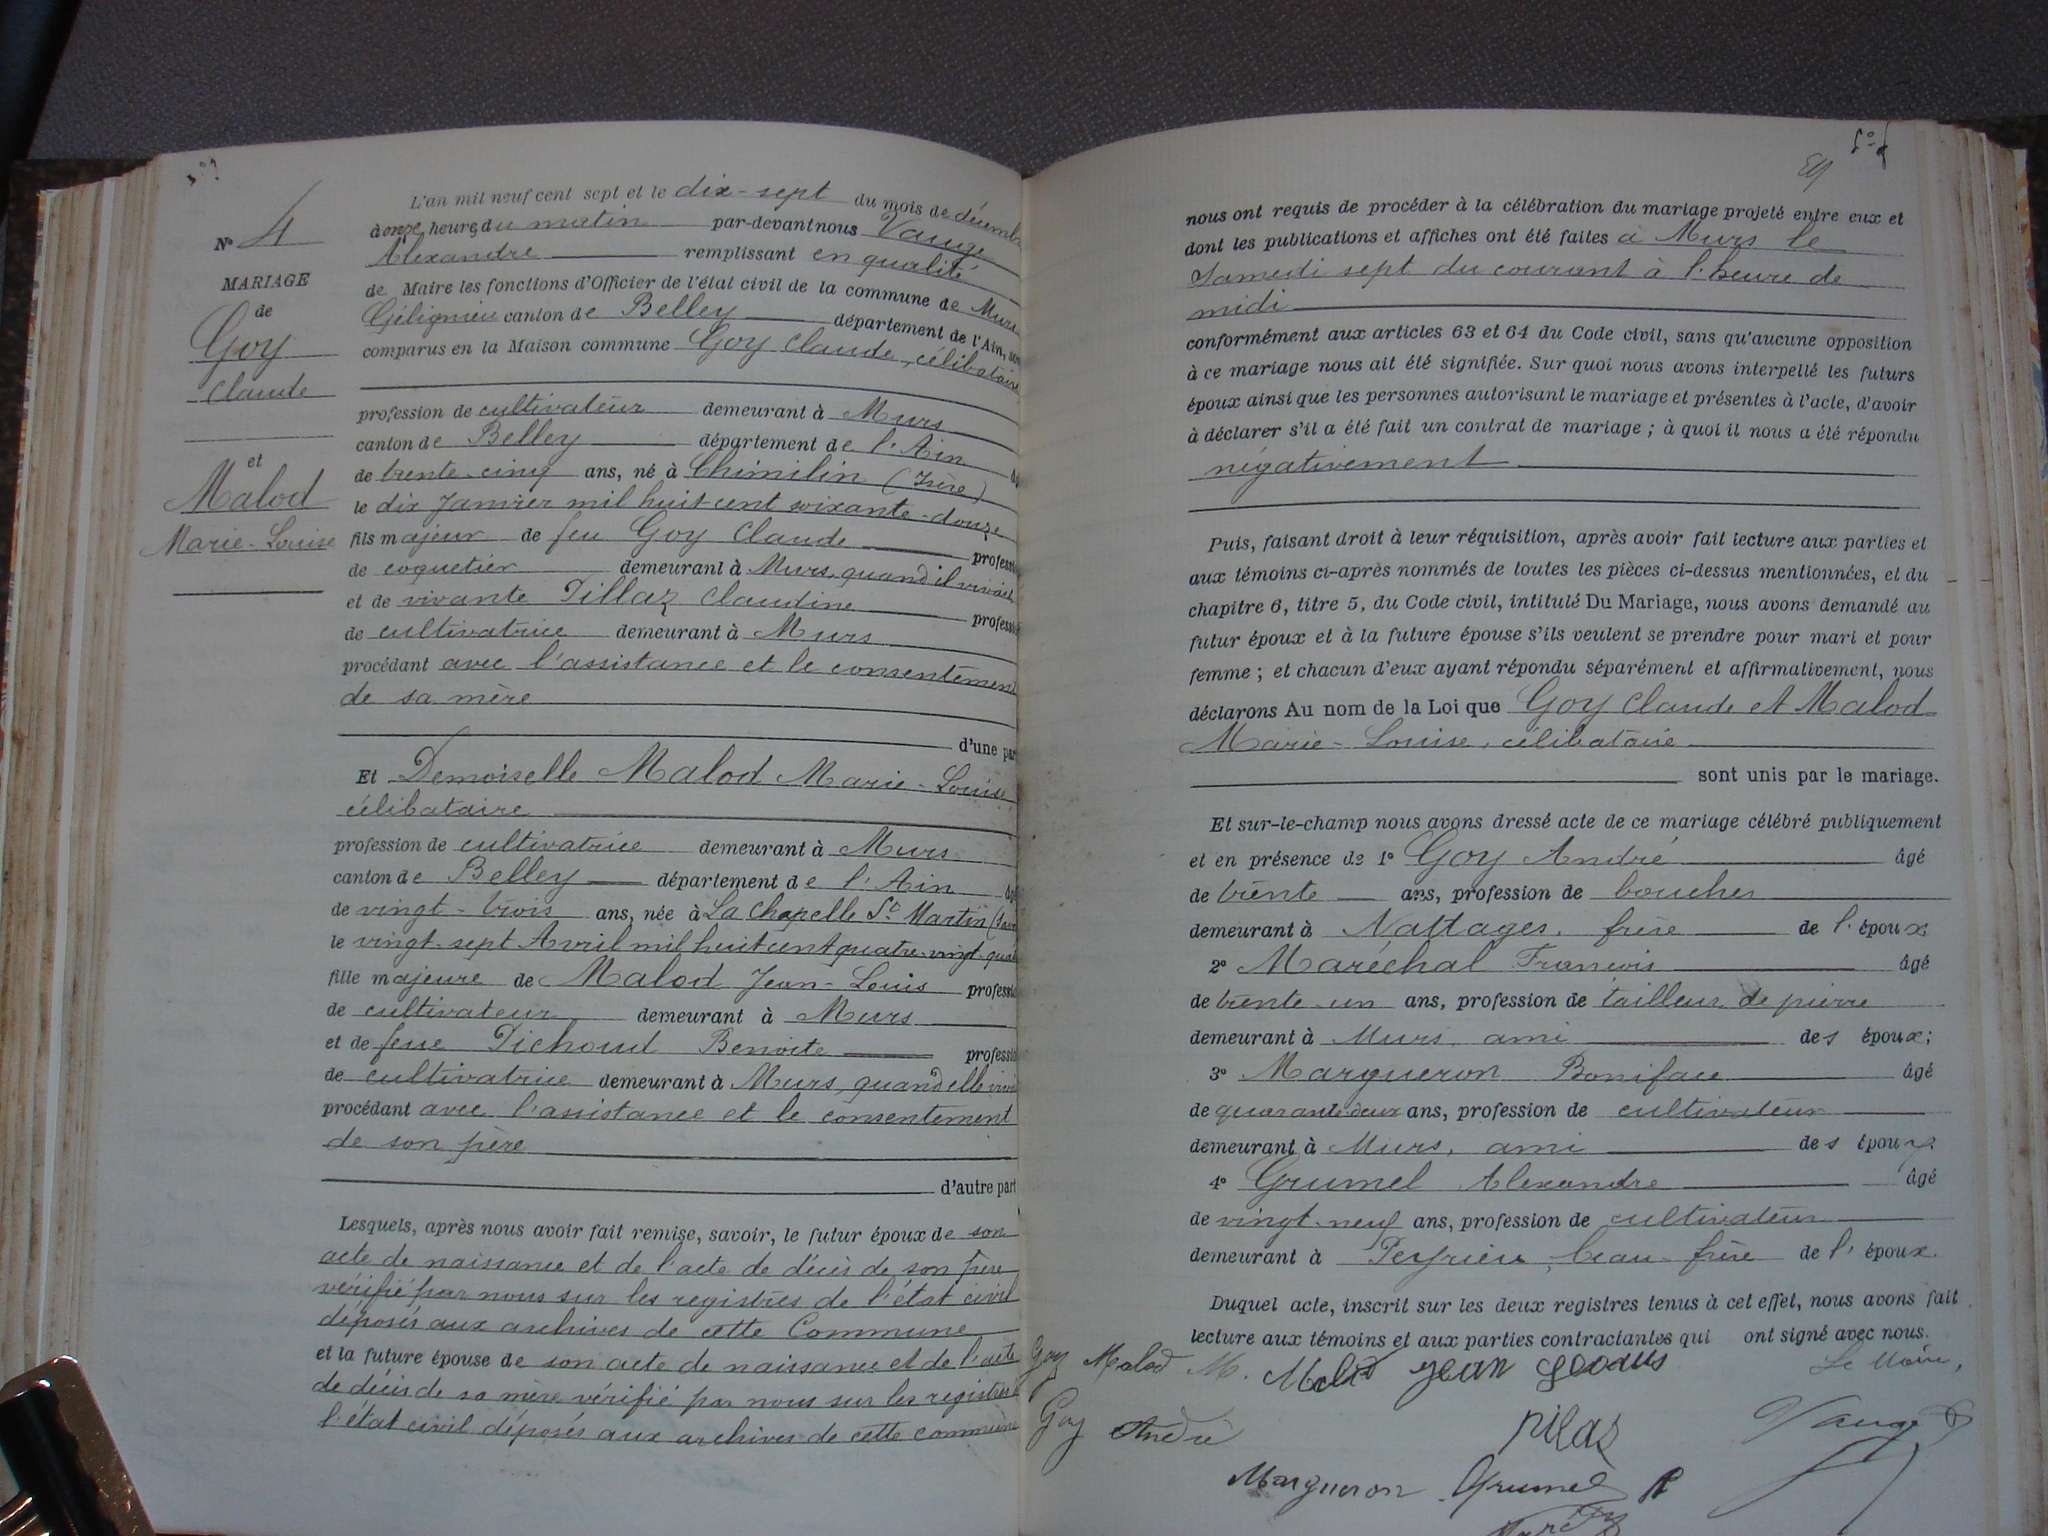 N° 4
MARIAGE
de
Goy
Claude
et
Malod
Marie-Louise
L'an mil neuf cent sept et le dix-sept du mois de décembre
à onze heures du matin par-devant nous Vauge
Alexandre remplissant en qualité
de Maire les fonctions d'Officier de l'état civil de la commune de Murs
Gélignieu canton de Belley département de l'Ain, sont
comparus en la Maison commune Goy Claude, célibataire
profession de cultivateur demeurant à Murs
canton de Belley département de l'Ain
de trente-cinq ans, né à Chimilin (Isère)
le dix Janvier mil huit cent soixante-douze
fils majeur de feu Goy Claude profession
de coquetier demeurant à Murs, quand il vivait
et de vivante Pillaz Claudine profession
de cultivatrice demeurant à Murs
procédant avec l'assistance et le consentement
de sa mère
d'une part
Et Demoiselle Malod Marie-Louise
célibataire
profession de cultivatrice demeurant à Murs
canton de Belley département de l'Ain
de vingt-trois ans, née à La Chapelle St Martin
le vingt-sept Avril mil huit cent quatre-vingt-quatre
fille majeure de Malod Jean-Louis profession
de cultivateur demeurant à Murs
et de feue Pichoud Benoite profession
de cultivatrice demeurant à Murs, quand elle vivait
procédant avec l'assistance et le consentement
de son père
d'autre part
Lesquels, après nous avoir fait remise, savoir, le futur époux de son
acte de naissance et de l'acte de décès de son père
vérifié par nous sur les registres de l'état civil
déposés aux archives de cette Commune
et la future épouse de son acte de naissance et de l'acte
de décès de sa mère vérifié par nous sur les registres
l'état civil déposés aux archives de cette commune
nous ont requis de procéder à la célébration du mariage projeté entre eux et
dont les publications et affiches ont été faites à Murs le
Samedi sept du courant à l'heure de
midi
conformément aux articles 63 et 64 du Code civil, sans qu'aucune opposition
à ce mariage nous ait été signifiée. Sur quoi nous avons interpellé les futurs
époux ainsi que les personnes autorisant le mariage et présentes à l'acte, d'avoir
à déclarer s'il a été fait un contrat de mariage ; à quoi il nous a été répondu
négativement
Puis, faisant droit à leur réquisition, après avoir fait lecture aux parties et
aux témoins ci-après nommés de toutes les pièces ci-dessus mentionnées, et du
chapitre 6, titre 5, du Code civil, intitulé Du Mariage, nous avons demandé au
futur époux et à la future épouse s'ils veulent se prendre pour mari et pour
femme ; et chacun d'eux ayant répondu séparément et affirmativement, nous
déclarons Au nom de la Loi que Goy Claude et Malod
Marie-Louise, célibataire
sont unis par le mariage.
Et sur-le-champ nous avons dressé acte de ce mariage célébré publiquement
et en présence de 1° Goy André âgé
de trente ans, profession de boucher
demeurant à Nattages, frère de l'époux
2° Maréchal François âgé
de trente-un ans, profession de tailleur de pierre
demeurant à Murs, ami des époux;
3° Margueron Boniface âgé
de quarante deux ans, profession de cultivateur
demeurant à Murs, ami des époux
4° Grumel Alexandre âgé
de vingt-neuf ans, profession de cultivateur
demeurant à Peyrieu, beau-frère de l'époux.
Duquel acte, inscrit sur les deux registres tenus à cet effet, nous avons fait
lecture aux témoins et aux parties contractantes qui ont signé avec nous.
Goy Malod M. Malod jean Le Maire,
Goy André Pilaz Vauge
Margueron Grumel